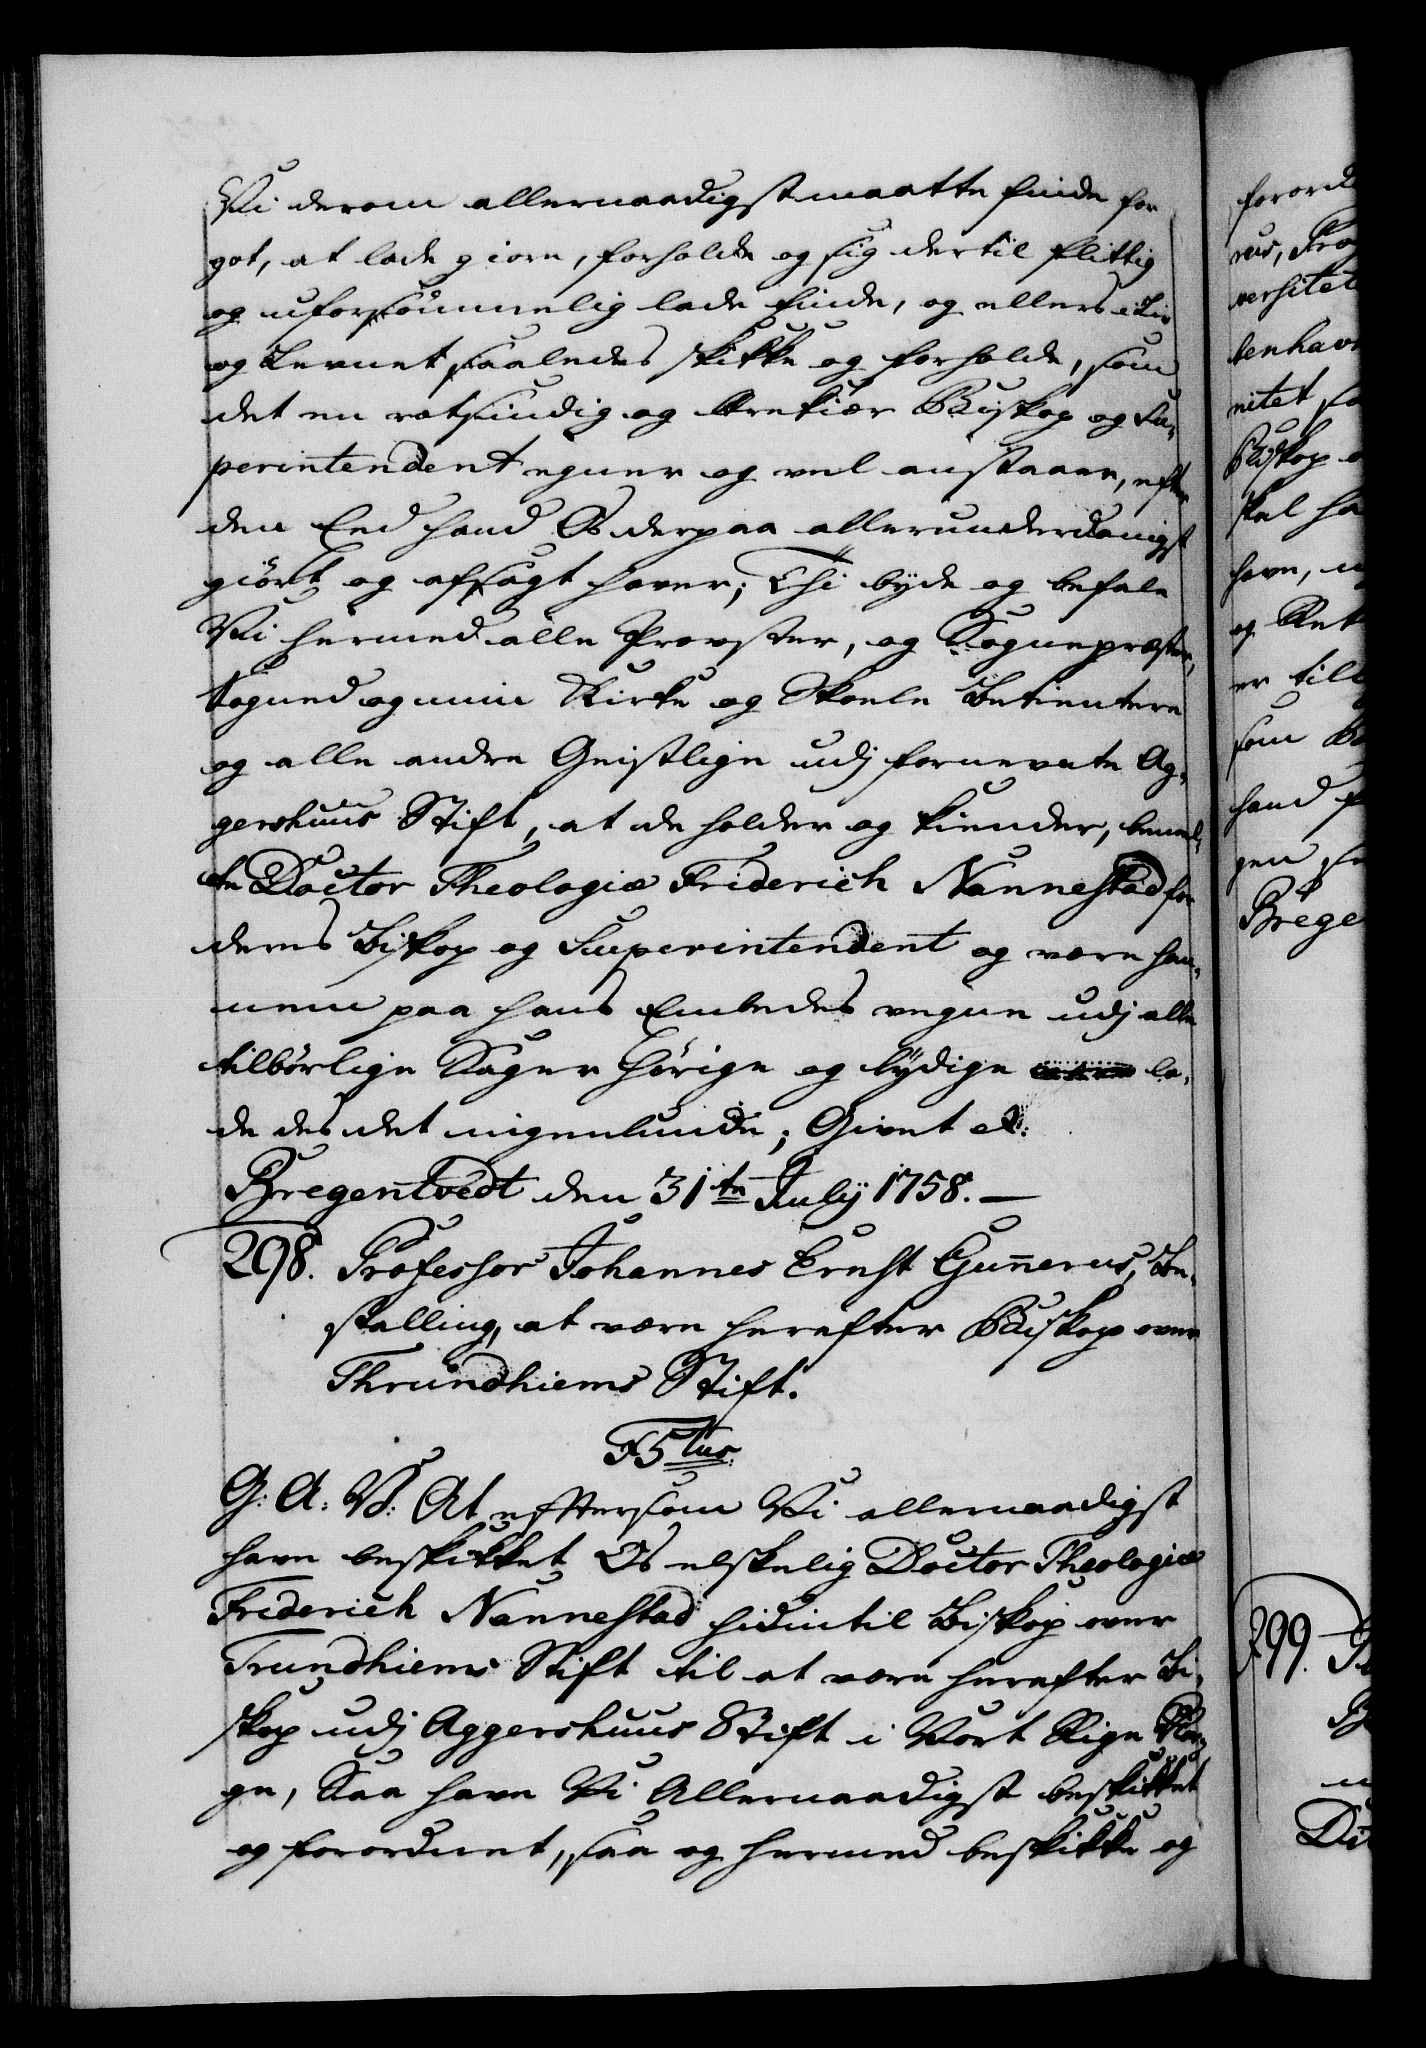 Vi derom allernaadigst maatte finde for
got, at lade giøre, forholde og sig dertil flittig
og uforsømmelig lade finde, og ellers i Liv
og Levnet saaledes skikke og forholde, som
det en retsindig og Ærekiær Biskop og Su-
perintendent egner og vel anstaaer, efter
den Eed hand Os derpaa allerunderdanigst
giort og aflagt haver; Thi byde og befale
Vi hermed alle Provster, og Sognepræster,
Sogned egnene Kirke og Skole Betientere
og alle andre Geistlige udj fornevnte Ag-
gershuus Stift, at de holder og kiender, bemel-
te Doctor Theologiæ Friderich Nannestad for
deres Biskop og Superintendent og være han-
nem paa hans Embedes vegne udj alle
tilbørlige Sager hørige og lydige la-
de des det ingenlunde; Givet etc:
Bregentvedt den 31te Julÿ 1758. —
298. Professor Johannes Ernst Guñerus, Be-
stalling, at være herefter Biskop over
Thrundhiems Stift.
F5tus
G: A: V: At efftersom Vi allernaadigst
have beskikket Os elskelig Doctor Theologiæ
Friderich Nannestad hidintil Biskop over
Trundhiems Stift til at være herefter Bi-
skop udj Aggershuus Stift i Vort Rige Nor-
ge, Saa have Vi Allernaadigst beskikket
og forordnet, saa og hermed beskikke og
forord
rus, Pro
versitet
benhavn
nitet sa
Biskop o
skal ha
havn, u
og Ret
er till
som B
hand f
gen
Brege
299.
Di